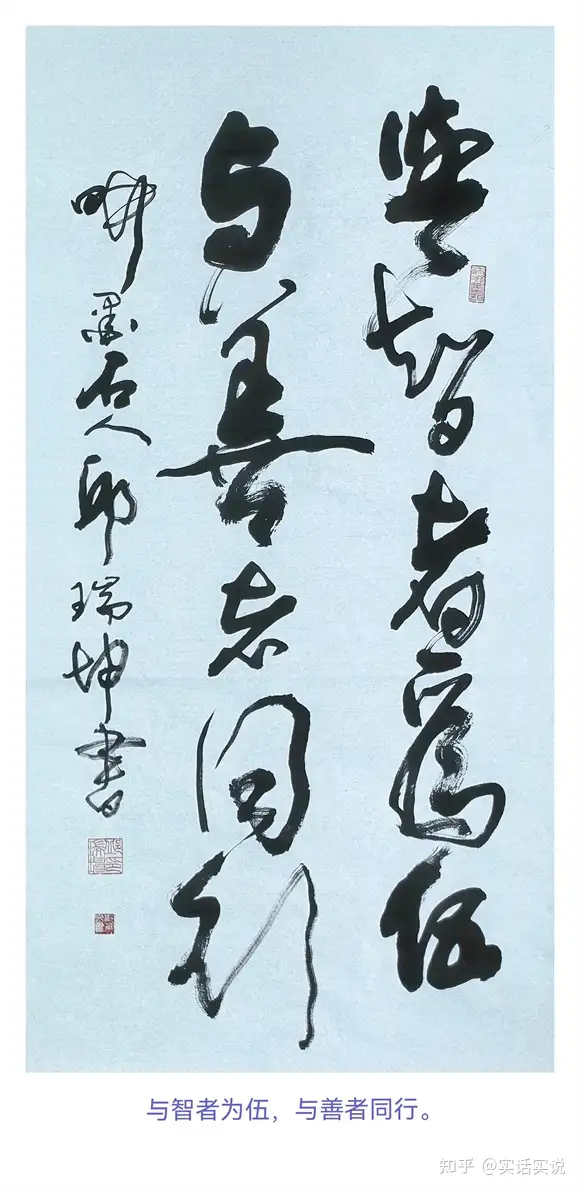 與智者為伍
与善者同行
畊墨石人邱瑞坤書
与智者为伍，与善者同行。
知乎 @实话实说